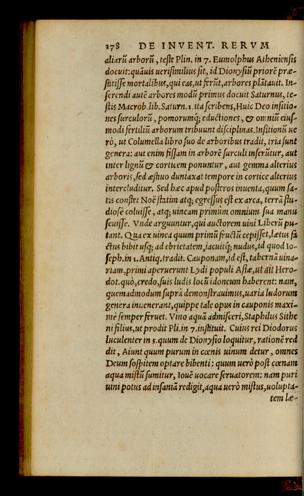 278 DE INVENT. RERVM
aliarũ arborũ, teste Plin. in 7. Eumolphus Atheniensis
docuit: quãuis uerisimilius sit, id Dionysiũ priorẽ præ-
stitisse mortalibus, qui eas, ut ferũt, arbores plãtauit. In-
serendi autẽ arbores modũ primus docuit Saturnus, te-
stis Macrob. lib. Saturn. 1. ita scribens, Huic Deo insitio-
nes surculorũ, pomorumq́; eductiones, & omniũ eius-
modi fertiliũ arborum tribuunt disciplinas. Insitionũ ue
rò, ut Columella libro suo de arboribus tradit, tria sunt
genera: aut enim fissam in arborẽ surculi inserũtur, aut
inter lignũ & corticem ponuntur, aut gemma alterius
arboris, sed æstuo duntaxat tempore in cortice alterius
intercluditur. Sed hæc apud postros inuenta, quum sa-
tis constet Noë statim atq; egressus est ex arca, terrã stu-
diosè coluisse, atq; uineam primũm omnium sua manu
seuisse. Vnde arguuntur, qui auctorem uini Liberũ pu-
tant. Qua ex uinea quum primũ fructũ cepisset, lætus fa
ctus bibit usq; ad ebrietatem, iacuitq́; nudus, id quod Io-
seph. in 1. Antiq. tradit. Cauponam, id est, tabernã uina-
riam, primi aperuerunt Lydi populi Asiæ, ut ait Hero-
dot. quò, credo, suis ludis locũ idoneum haberent: nam,
quemadmodum supra demonstrauimus, uaria ludorum
genera inuenerant, quippe tale opus in cauponis maxi-
mè semper feruet. Vino aquã admisceri, Staphilus Sithe
ni filius, ut prodit Pli. in 7. instituit. Cuius rei Diodorus
luculenter in 5. quum de Dionysio loquitur, rationẽ red
dit, Aiunt quum purum in cœnis uinum detur, omnes
Deum sospitem optare bibenti: quum uerò post cœnam
aqua mistũ sumitur, Iouẽ uocare seruatorem: nam puri
uini potus ad insaniã redigit, aqua uerò mistus, uolupta-
tem læ-